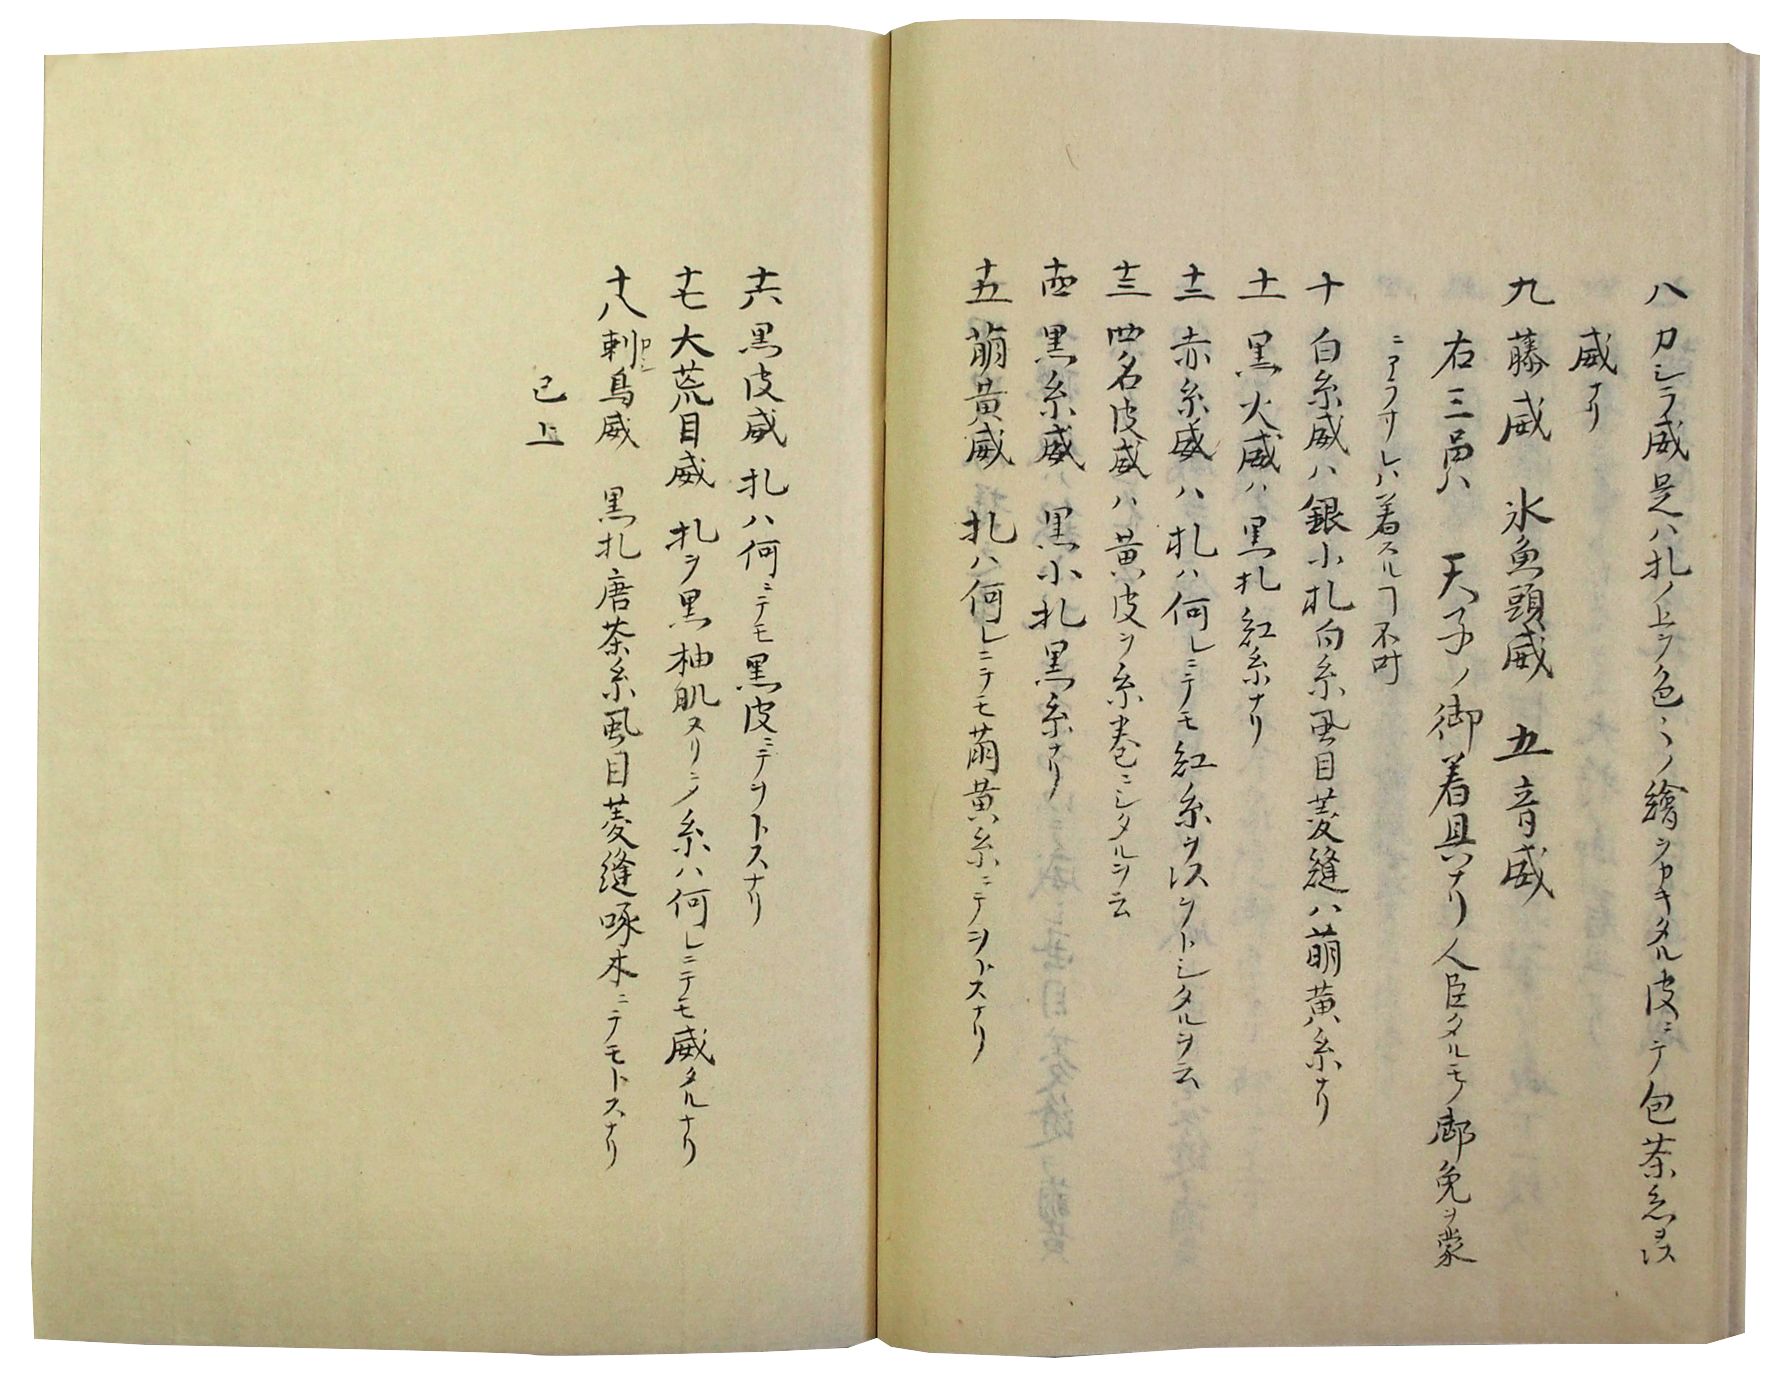 八 カシラ威是ハ札ノ上ヲ色々ノ繪ヲカキタル皮ニテ包茶糸ヲス
威ナリ
九 藤威 氷魚頭威 五音威
右三品ハ 天子ノ御着具ナリ人臣タルモノ御免ヲ蒙
ニアラサレハ着スルヿ不叶
十 白糸威ハ銀小札白糸風目菱縫ハ萠黄糸ナリ
十一 黒火威ハ黒札紅糸ナリ
十二 赤糸威ハ札ハ何レニテモ紅糸ヲ以ヲトシタルヲ云
十三 四名皮威ハ黄皮ヲ糸巻ニシタルヲ云
十四 黒糸威 黒小札黒糸ナリ
十五 萠黄威 札ハ何レニテモ萠黄糸ニテヲトスナリ
十六 黒皮威 札ハ何ニテモ黒皮ニテヲトスナリ
十七 大荒目威 札ヲ黒柚肌ヌリニノ糸ハ何レニテモ威タルナリ
十八 刺鳥威 黒札唐茶糸風目菱縫啄木ニテモトスナリ
已上